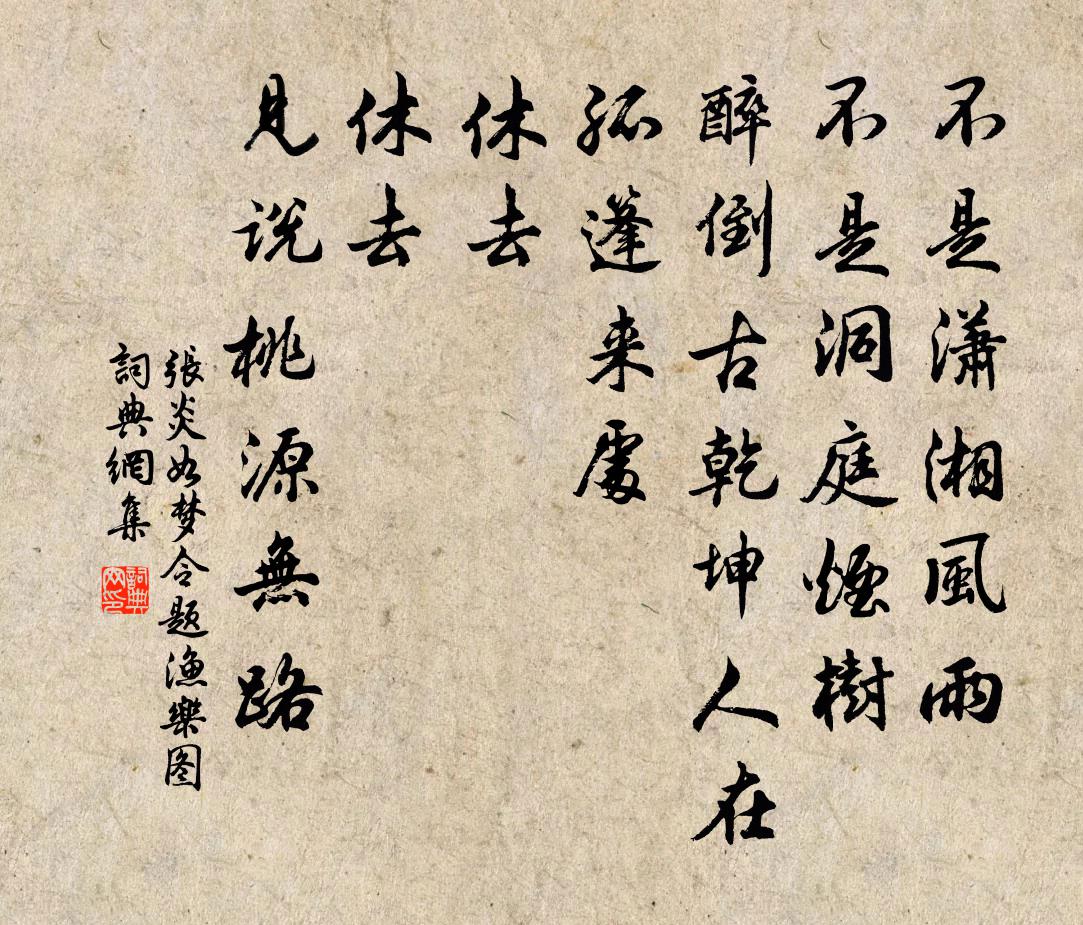 不是瀟湘風雨
不是洞庭煙樹
醉倒古乾坤人在
孤蓬来處
休去
休去
見说桃源無路
張炎如梦令题漁樂图
詞典網集
詞典網印